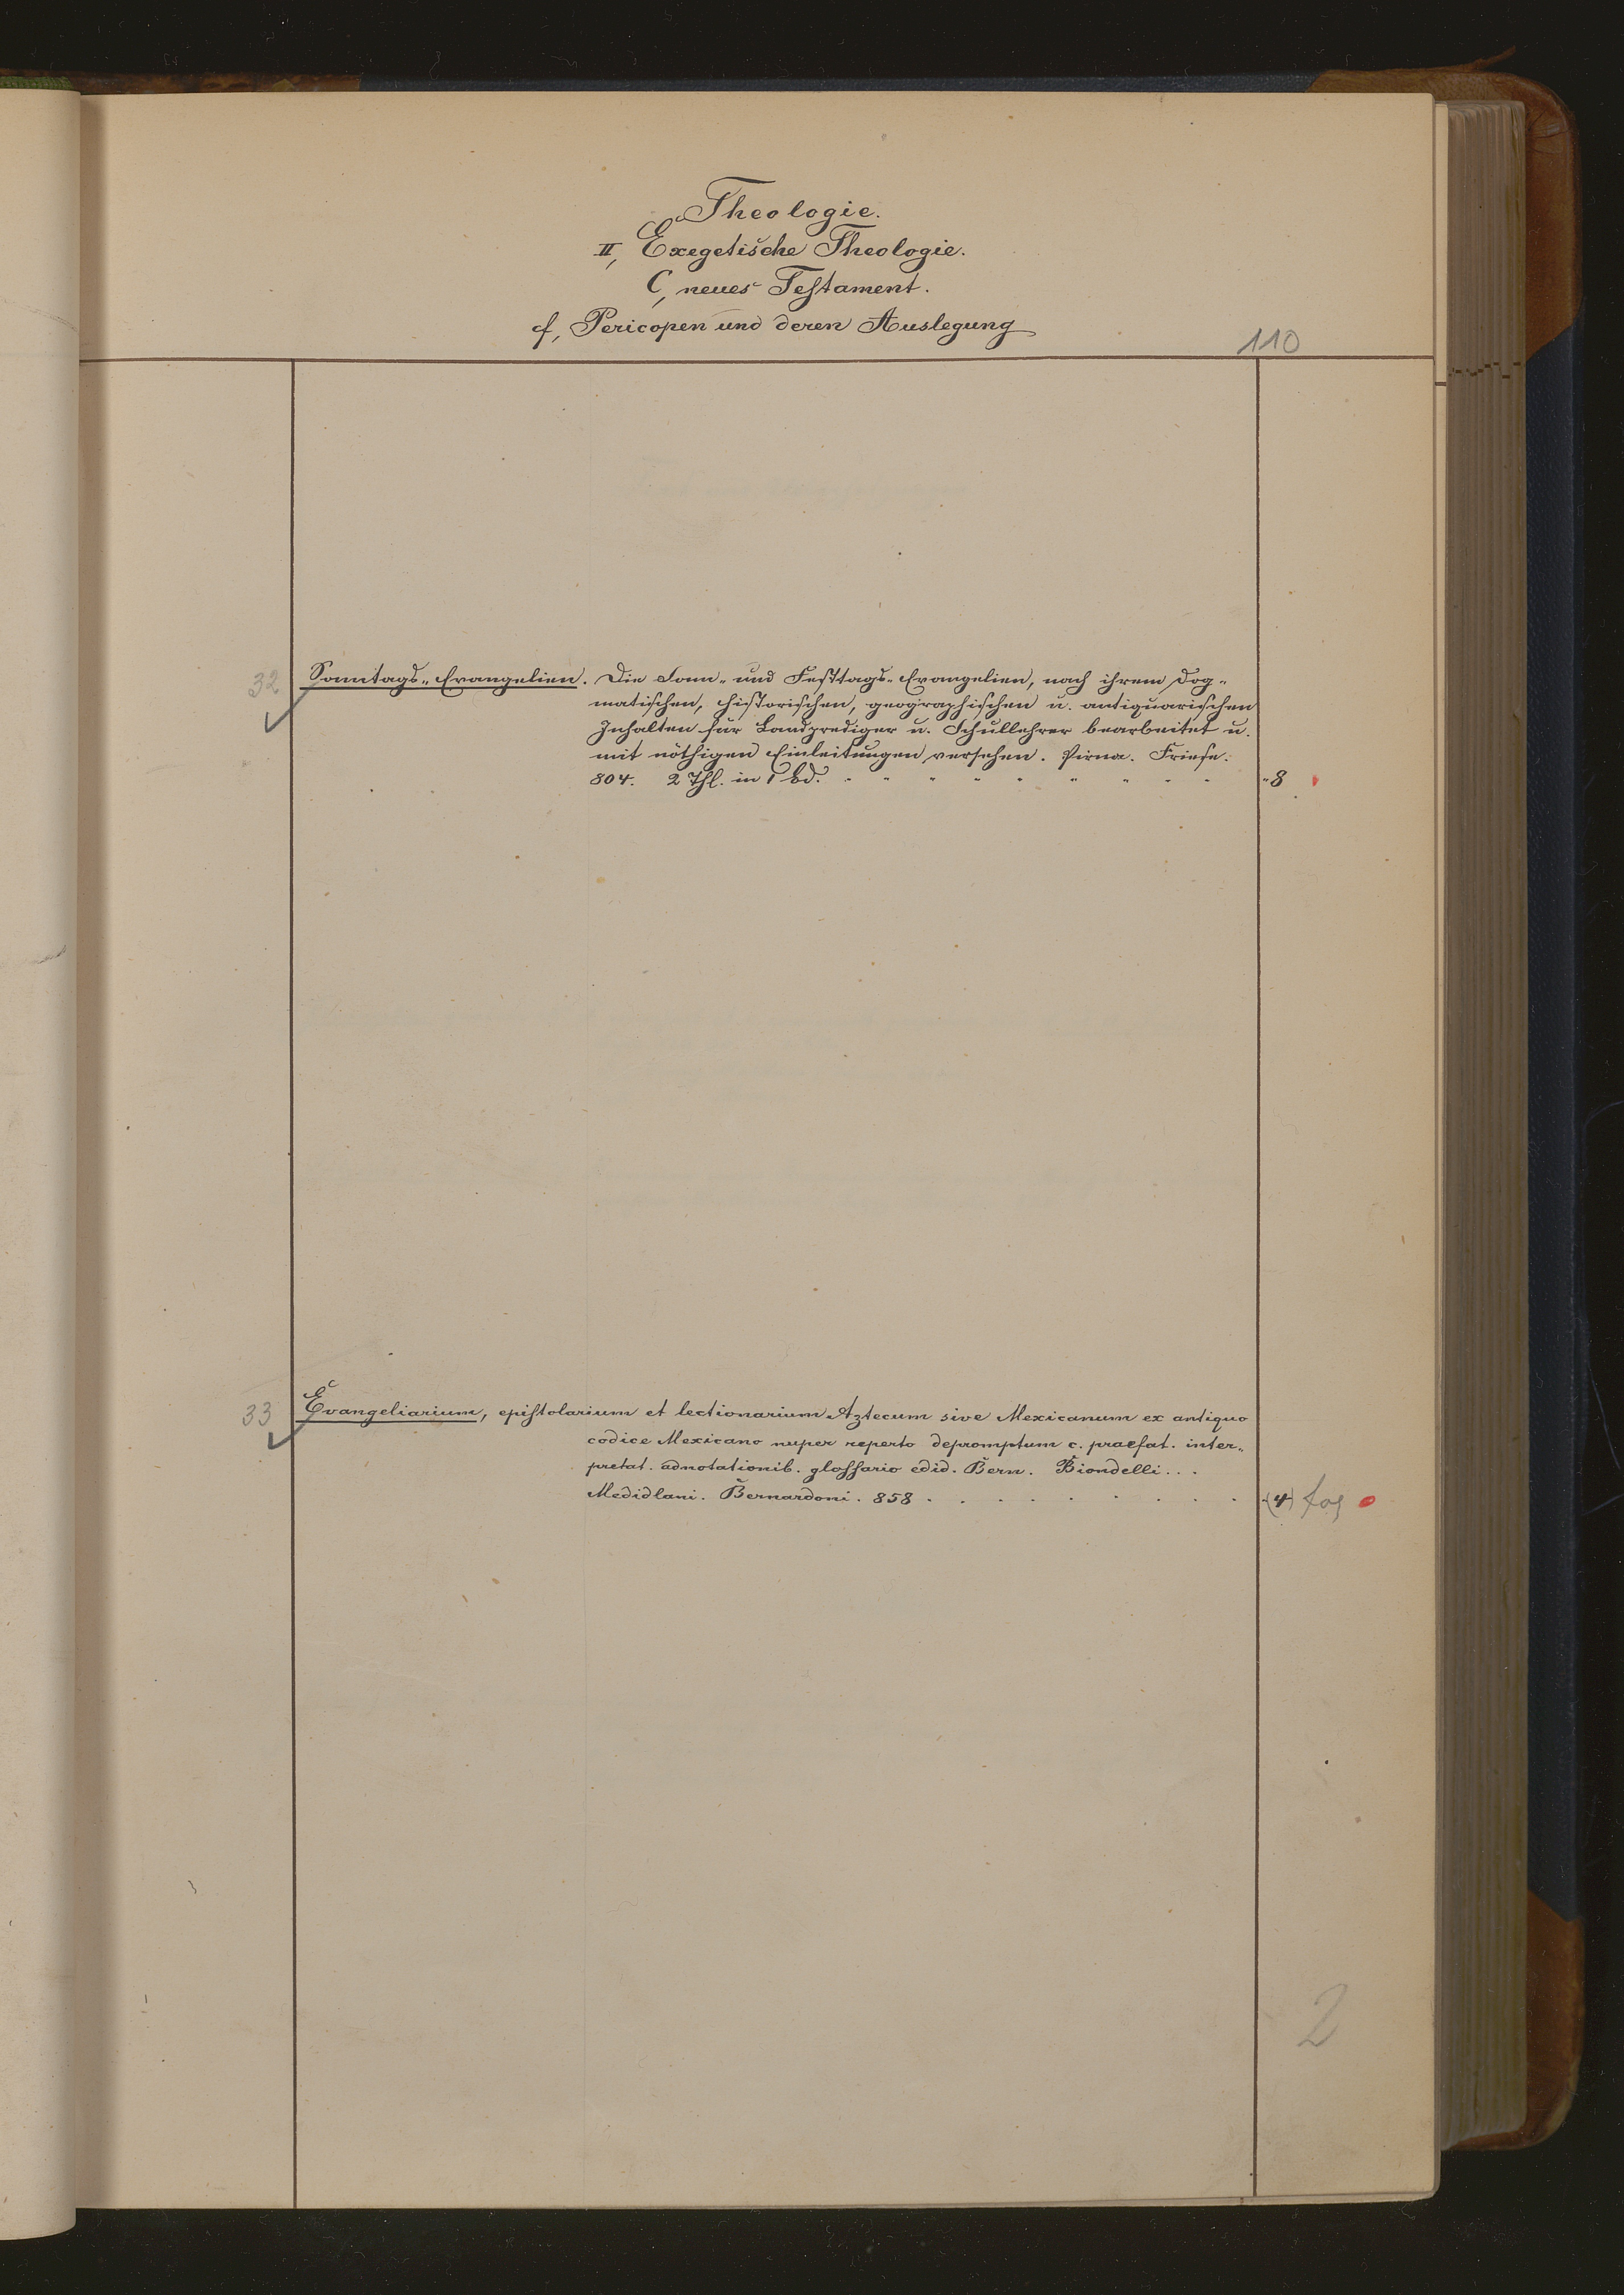 Theologie.
II, Exegetische Theologie.
C, neues Testament.
f, Pericopen und deren Auslegung
110
32 Sonntags-Evangelien. Die Sonn- und Festtags-Evangelien, nach ihrem dog-
matischen, historischen, geographischen u. antiquarischen
Inhalten für Landprediger u. Schullehrer bearbeitet u.
mit nöthigen Einleitungen versehen. Pirna. Friese.
804. 2 Thl. in 1 Bd. 8
33 Evangeliarium, epistolarium et lectionarium Aztecum sive Mexicanum ex antiquo
codice Mexicano nuper reperto depromptum c. praefat. inter-
pretat. adnotationib. glossario edid. Bern. Biondelli...
Medidlani. Bernardoni. 858 . . . . . . . . . (4) fol
2